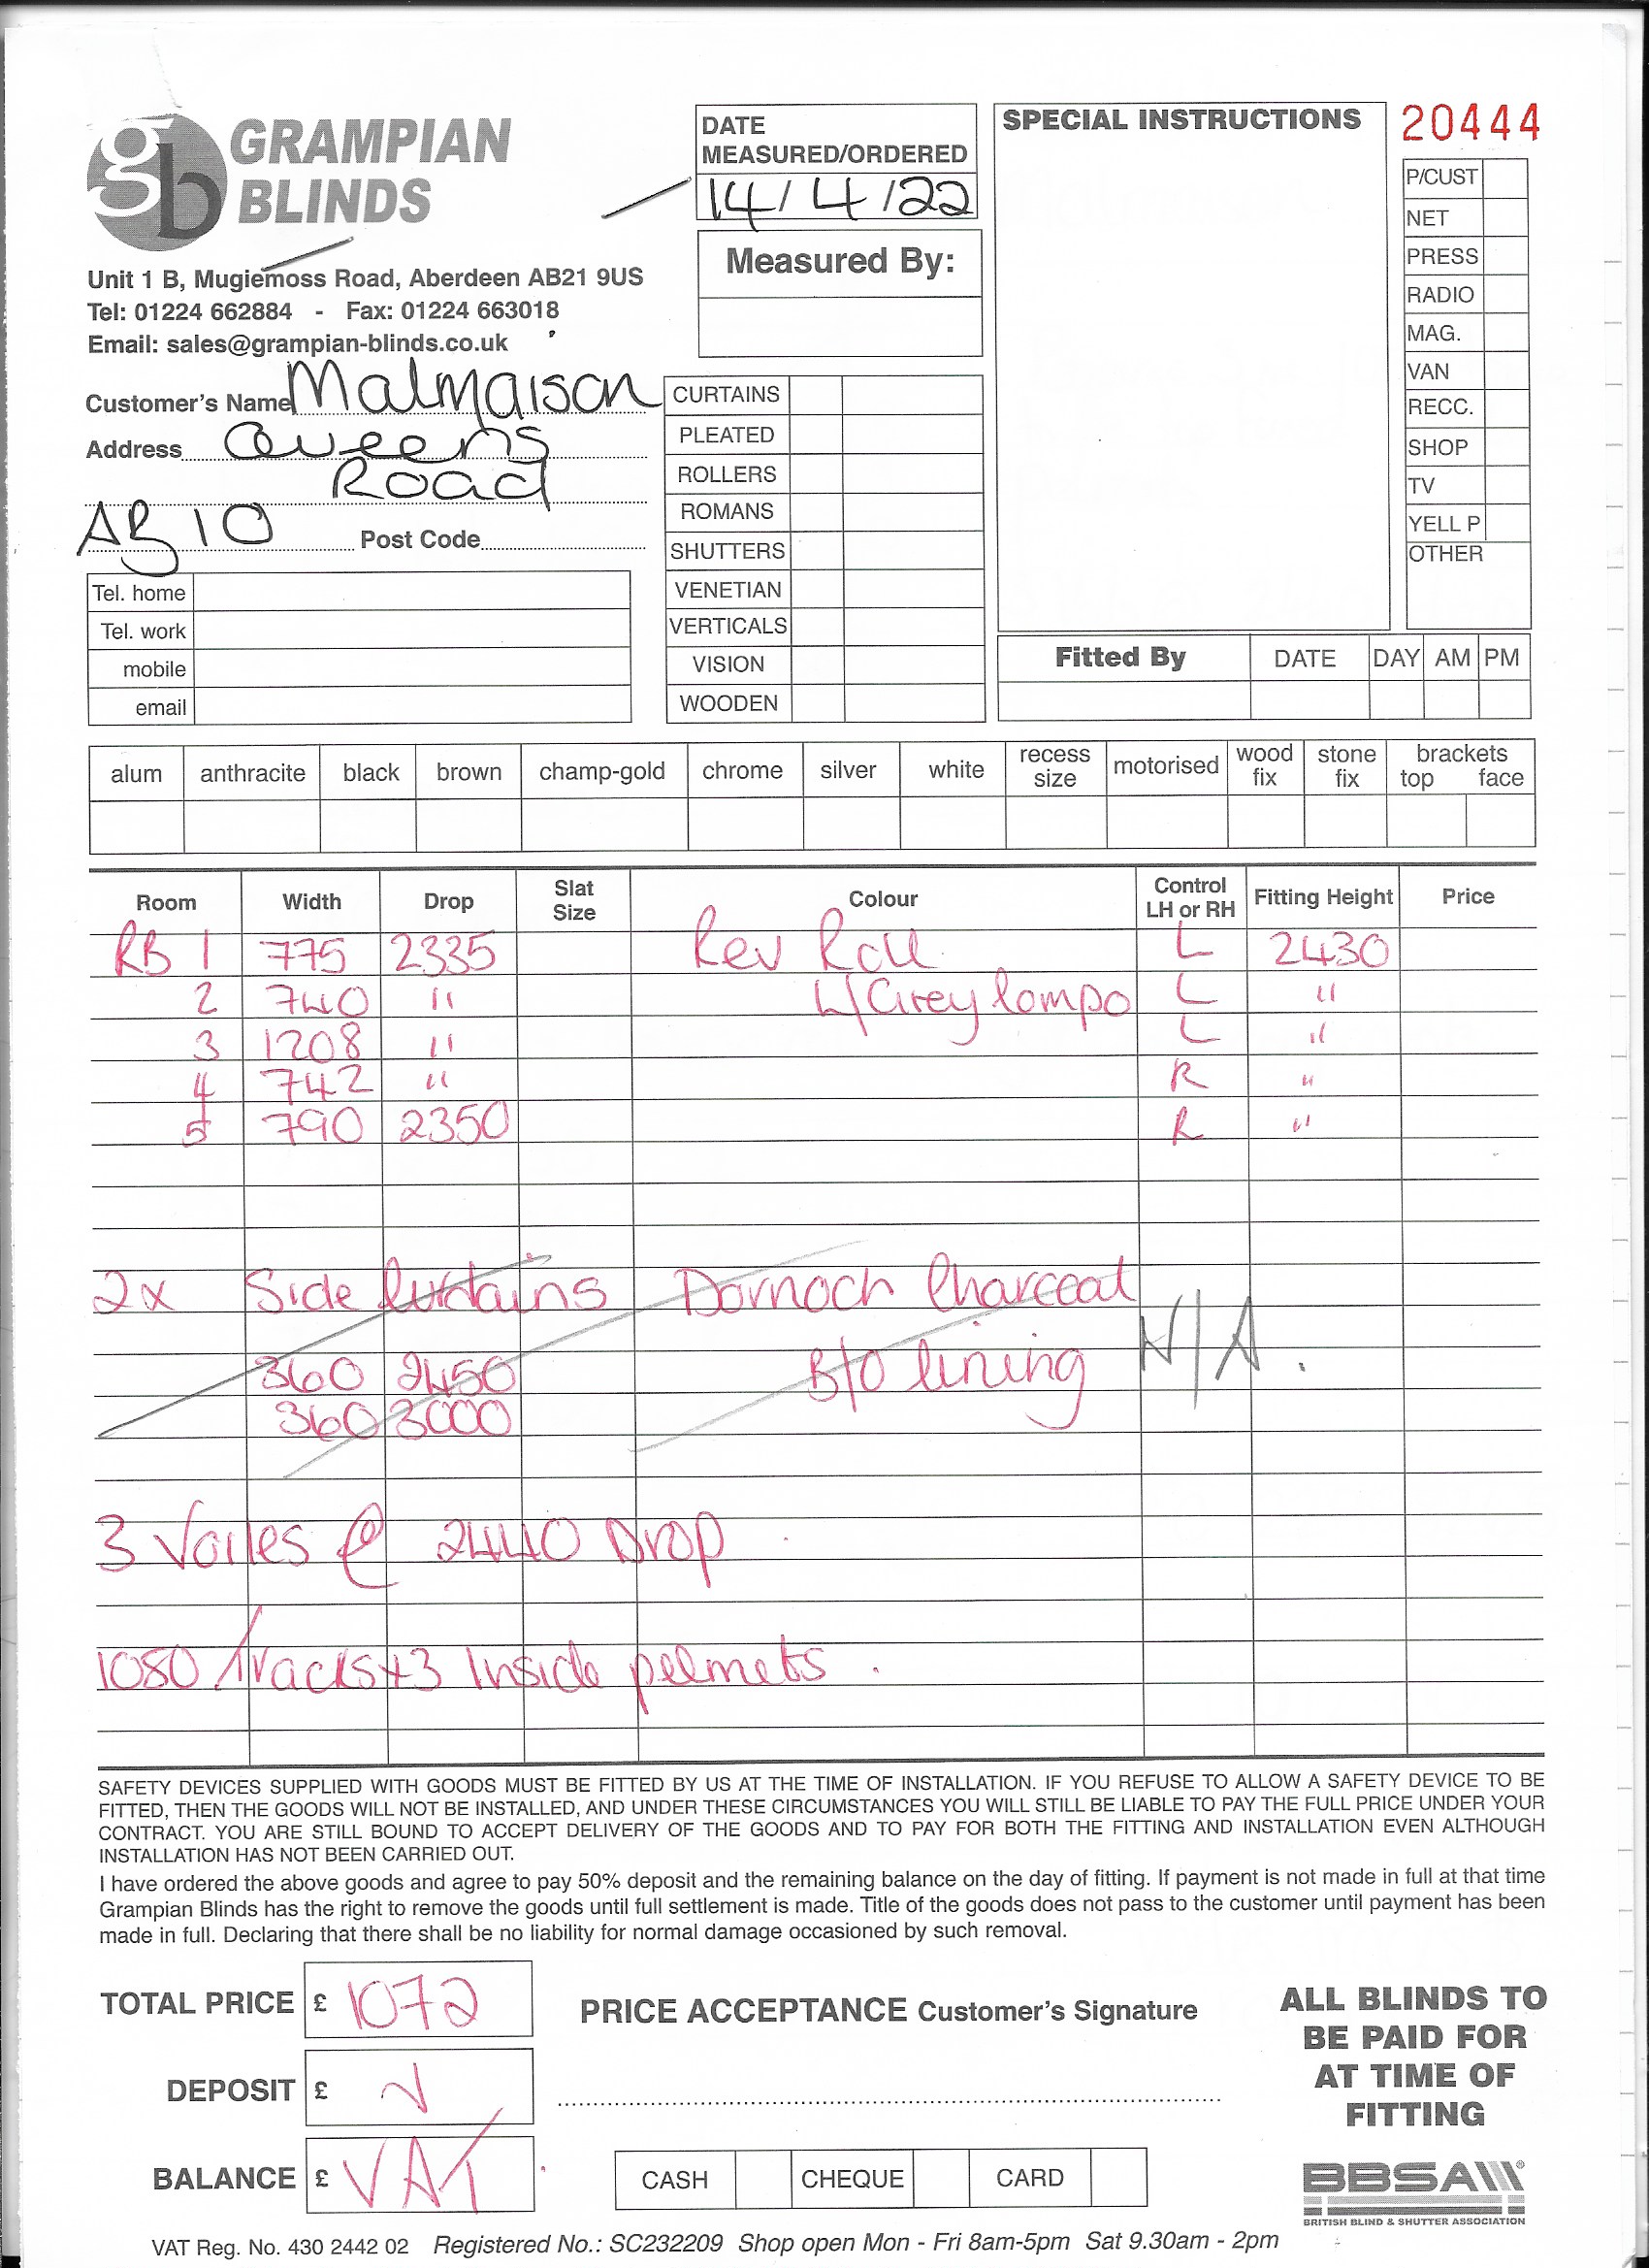 gb GRAMPIAN
BLINDS
Unit 1 B, Mugiemoss Road, Aberdeen AB21 9US
Tel: 01224 662884 - Fax: 01224 663018
Email: sales@grampian-blinds.co.uk
DATE
MEASURED/ORDERED
14/4/22
Measured By:
SPECIAL INSTRUCTIONS
20444
P/CUST
NET
PRESS
RADIO
MAG.
VAN
RECC.
SHOP
TV
YELL P
OTHER
Customer's Name Malmaison
Address Queens
Road
AB10 Post Code
Tel. home
Tel. work
mobile
email
CURTAINS
PLEATED
ROLLERS
ROMANS
SHUTTERS
VENETIAN
VERTICALS
VISION
WOODEN
Fitted By DATE DAY AM PM
alum anthracite black brown champ-gold chrome silver white recess size motorised wood fix stone fix brackets top face
Room Width Drop Slat Size Colour Control LH or RH Fitting Height Price
RB 1 775 2335 Rev Roll L 2430
2 740 " L/Grey lompo L "
3 1208 " L "
4 742 " R "
5 790 2350 R "
2x Side Curtains Dornoch Charcoal
360 2450 B/O lining N/A.
360 3000
3 Voiles @ 2440 Drop
1080 Tracks x3 Inside pelmets.
SAFETY DEVICES SUPPLIED WITH GOODS MUST BE FITTED BY US AT THE TIME OF INSTALLATION. IF YOU REFUSE TO ALLOW A SAFETY DEVICE TO BE
FITTED, THEN THE GOODS WILL NOT BE INSTALLED, AND UNDER THESE CIRCUMSTANCES YOU WILL STILL BE LIABLE TO PAY THE FULL PRICE UNDER YOUR
CONTRACT. YOU ARE STILL BOUND TO ACCEPT DELIVERY OF THE GOODS AND TO PAY FOR BOTH THE FITTING AND INSTALLATION EVEN ALTHOUGH
INSTALLATION HAS NOT BEEN CARRIED OUT.
I have ordered the above goods and agree to pay 50% deposit and the remaining balance on the day of fitting. If payment is not made in full at that time
Grampian Blinds has the right to remove the goods until full settlement is made. Title of the goods does not pass to the customer until payment has been
made in full. Declaring that there shall be no liability for normal damage occasioned by such removal.
TOTAL PRICE £ 1072
DEPOSIT £
BALANCE £ VAT
PRICE ACCEPTANCE Customer's Signature
CASH CHEQUE CARD
ALL BLINDS TO
BE PAID FOR
AT TIME OF
FITTING
BBSA
BRITISH BLIND & SHUTTER ASSOCIATION
VAT Reg. No. 430 2442 02 Registered No.: SC232209 Shop open Mon - Fri 8am-5pm Sat 9.30am - 2pm